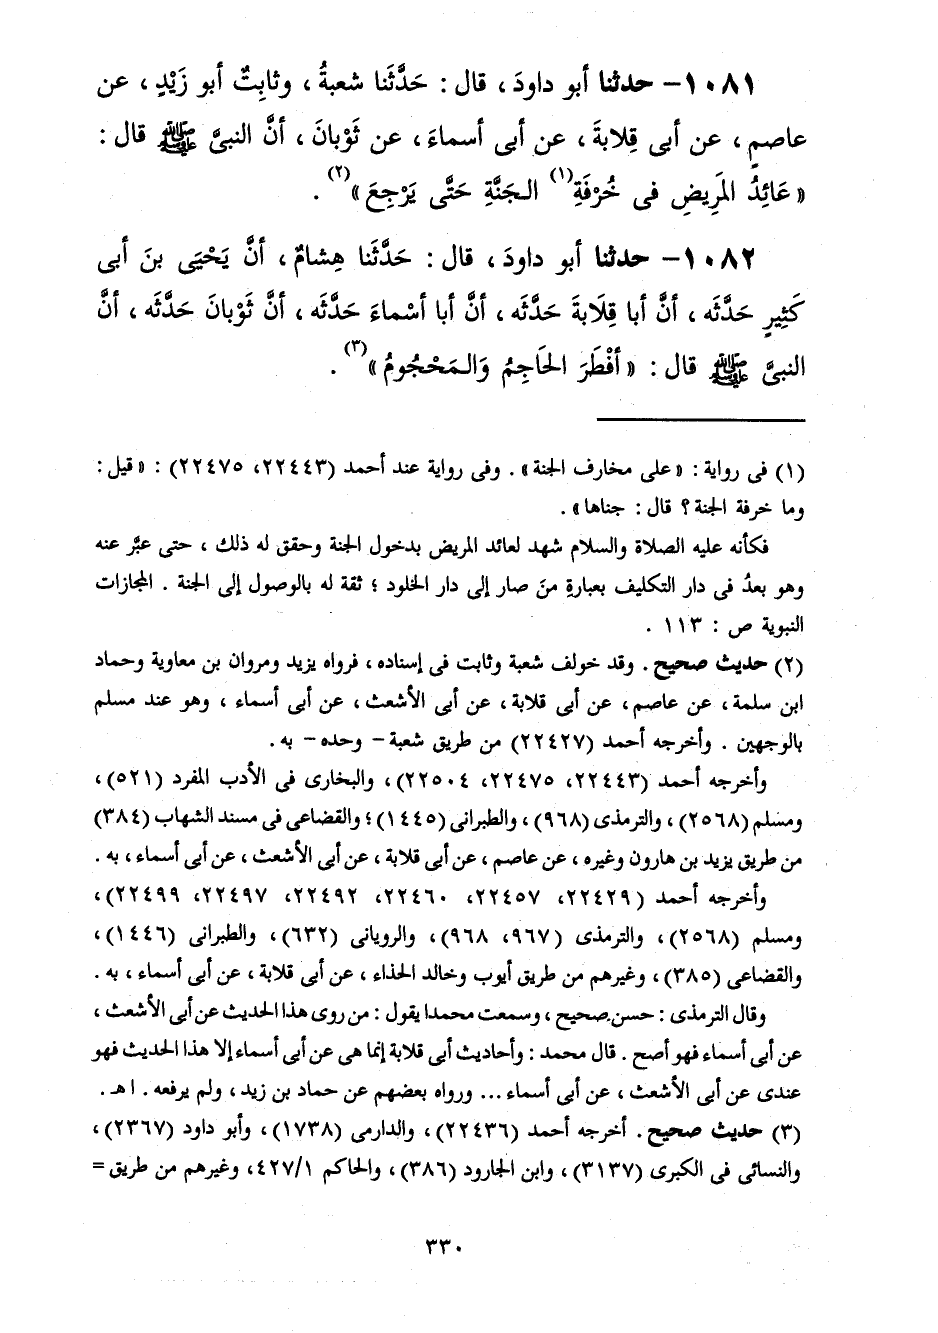 ١٠٨١- حدثنا أبو داودَ ، قال : حَدَّثَنا شعبةُ ، وثابِتٌ أبو زَيْدٍ ، عن
عاصمٍ ، عن أبى قِلابةَ ، عن أبى أسماءَ ، عن ثَوْبانَ ، أنَّ النبىَّ ﷺ قال :
« عَائِدُ المَرِيضِ فى خُرْفَةِ(١) الجَنَّةِ حَتَّى يَرْجِعَ »(٢) .
١٠٨٢- حدثنا أبو داودَ ، قال : حَدَّثَنا هِشامٌ ، أنَّ يَحْيَى بنَ أبى
كَثِيرٍ حَدَّثَه ، أنَّ أبا قِلَابةَ حَدَّثَه ، أنَّ أبا أسْماءَ حَدَّثَه ، أنَّ ثَوْبانَ حَدَّثَه ، أنَّ
النبىَّ ﷺ قال : « أفْطَرَ الحَاجِمُ وَالمَحْجُومُ »(٣) .
(١) فى رواية : « على مخارف الجنة » . وفى رواية عند أحمد (٢٢٤٤٣، ٢٢٤٧٥) : « قيل :
وما خرفة الجنة ؟ قال : جناها » .
فكأنه عليه الصلاة والسلام شهد لعائد المريض بدخول الجنة وحقق له ذلك ، حتى عبَّر عنه
وهو بعدُ فى دار التكليف بعبارةِ منَ صار إلى دار الخلود ؛ ثقة له بالوصول إلى الجنة . المجازات
النبوية ص : ١١٣ .
(٢) حديث صحيح . وقد خولف شعبة وثابت فى إسناده ، فرواه يزيد ومروان بن معاوية وحماد
ابن سلمة ، عن عاصم ، عن أبى قلابة ، عن أبى الأشعث ، عن أبى أسماء ، وهو عند مسلم
بالوجهين . وأخرجه أحمد (٢٢٤٢٧) من طريق شعبة - وحده - به .
وأخرجه أحمد (٢٢٤٤٣، ٢٢٤٧٥، ٢٢٥٠٤) ، والبخارى فى الأدب المفرد (٥٢١) ،
ومسلم (٢٥٦٨) ، والترمذى (٩٦٨) ، والطبرانى (١٤٤٥) ؛ والقضاعى فى مسند الشهاب (٣٨٤)
من طريق يزيد بن هارون وغيره ، عن عاصم ، عن أبى قلابة ، عن أبى الأشعث ، عن أبى أسماء ، به .
وأخرجه أحمد (٢٢٤٢٩، ٢٢٤٥٧، ٢٢٤٦٠، ٢٢٤٩٢، ٢٢٤٩٧، ٢٢٤٩٩) ،
ومسلم (٢٥٦٨) ، والترمذى (٩٦٧، ٩٦٨) ، والرويانى (٦٣٢) ، والطبرانى (١٤٤٦) ،
والقضاعى (٣٨٥) ، وغيرهم من طريق أيوب وخالد الحذاء ، عن أبى قلابة ، عن أبى أسماء ، به .
وقال الترمذى : حسن صحيح ، وسمعت محمدا يقول : من روى هذا الحديث عن أبى الأشعث ،
عن أبى أسماء فهو أصح . قال محمد : وأحاديث أبى قلابة إنما هى عن أبى أسماء إلا هذا الحديث فهو
عندى عن أبى الأشعث ، عن أبى أسماء ... ورواه بعضهم عن حماد بن زيد ، ولم يرفعه . ا هـ .
(٣) حديث صحيح . أخرجه أحمد (٢٢٤٣٦) ، والدارمى (١٧٣٨) ، وأبو داود (٢٣٦٧) ،
والنسائى فى الكبرى (٣١٣٧) ، وابن الجارود (٣٨٦) ، والحاكم ٤٢٧/١، وغيرهم من طريق =
٣٣٠